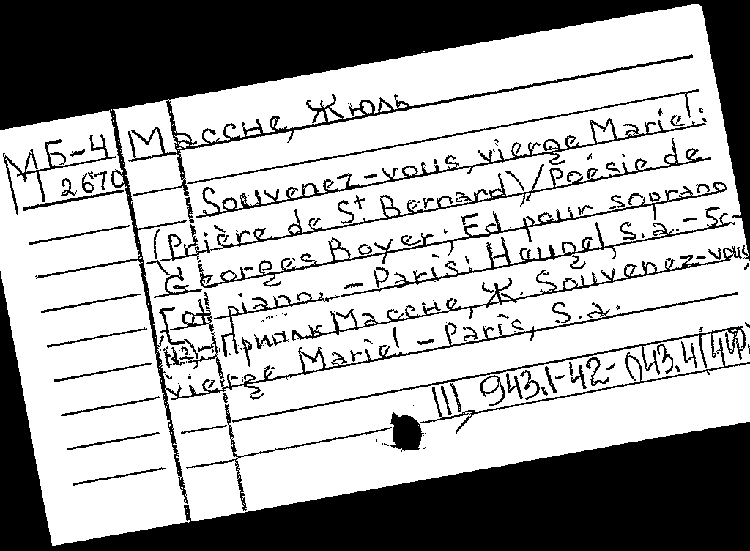 МБ-4
М 2670
Массне, Жюль
Souvenez-vous, vierge Marie!:
(Prière de St Bernard)/Poésie de
Georges Boyer; Ed pour soprano
et piano. - Paris: Heugel, s.a. - 5c.
Припл. к Массне, Ж. Souvenez-vous,
vierge Marie! - Paris, s.a.
III 943.1-42-043.4(4Фр